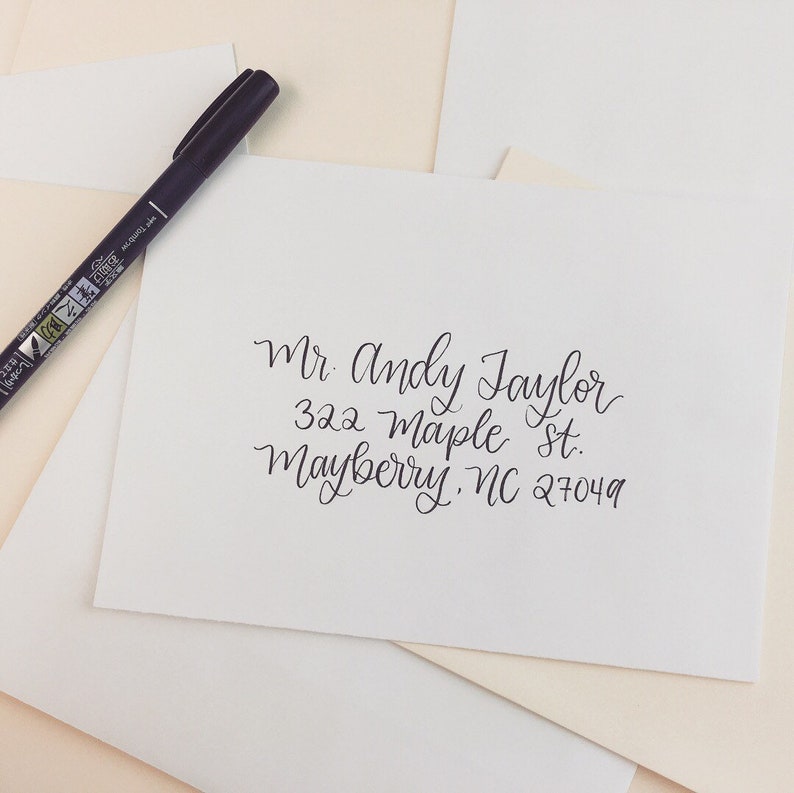 Mr. Andy Taylor
322 Maple St.
Mayberry, NC 27049
Tombow
筆之助
しっかり仕立て